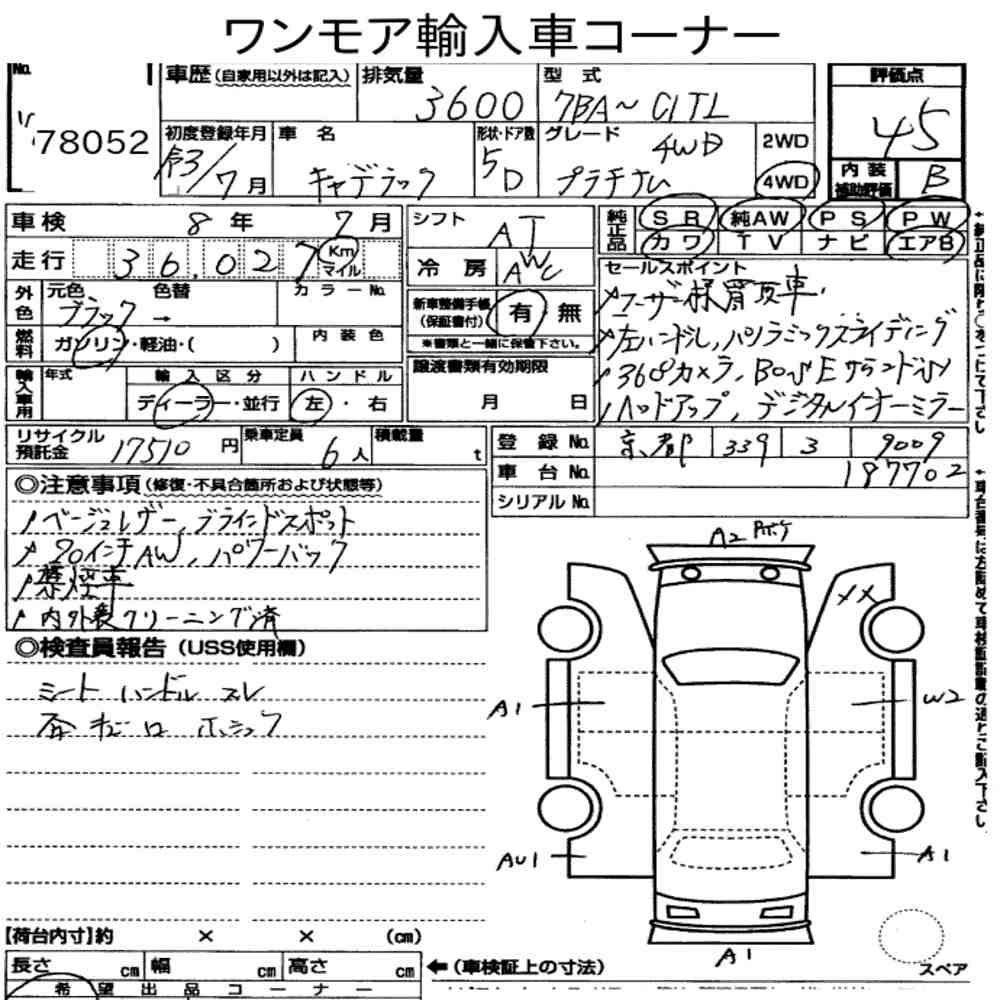 ワンモア輸入車コーナー
No. 78052
車歴(自家用以外は記入)
排気量 3600
型式 7BA~C1TL
評価点 45
内装補助評価 B
初度登録年月 令3/7月
車名 キャデラック
形状・ドア数 5D
グレード 4WD
プラチナム
2WD
4WD
車検 8年 7月
走行 36,027 Km マイル
シフト AT
冷房 AWC
純正品 SR 純AW PS PW
カワ TV ナビ エアB
外色 元色 色替 カラーNo.
ブラック →
燃料 ガソリン・軽油・( )
内装色
新車整備手帳(保証書付) 有・無
※書類と一緒に保管下さい。
セールスポイント
ユーザー様買取車
左ハンドル,パノラミックスライディング
360°カメラ,BOSEサラウンドSV
ヘッドアップ,デジタルインナーミラー
輸入車用 年式 輸入区分 ハンドル
ディーラー・並行 左・右
譲渡書類有効期限
月 日
リサイクル預託金 17510円
乗車定員 6人
積載量 t
登録No. 京都 339 ろ 9009
車台No. 187702
シリアルNo.
◎注意事項(修復・不具合箇所および状態等)
ベージュレザー,ブラインドスポット
20インチAW,パワーバック
禁煙車
内外装クリーニング済
◎検査員報告(USS使用欄)
シート ハンドル スレ
A2
XX
A1
W2
AU1
A1
A1
スペア
【荷台内寸】約 × × (cm)
長さ cm 幅 cm 高さ cm
←(車検証上の寸法)
希望出品コーナー